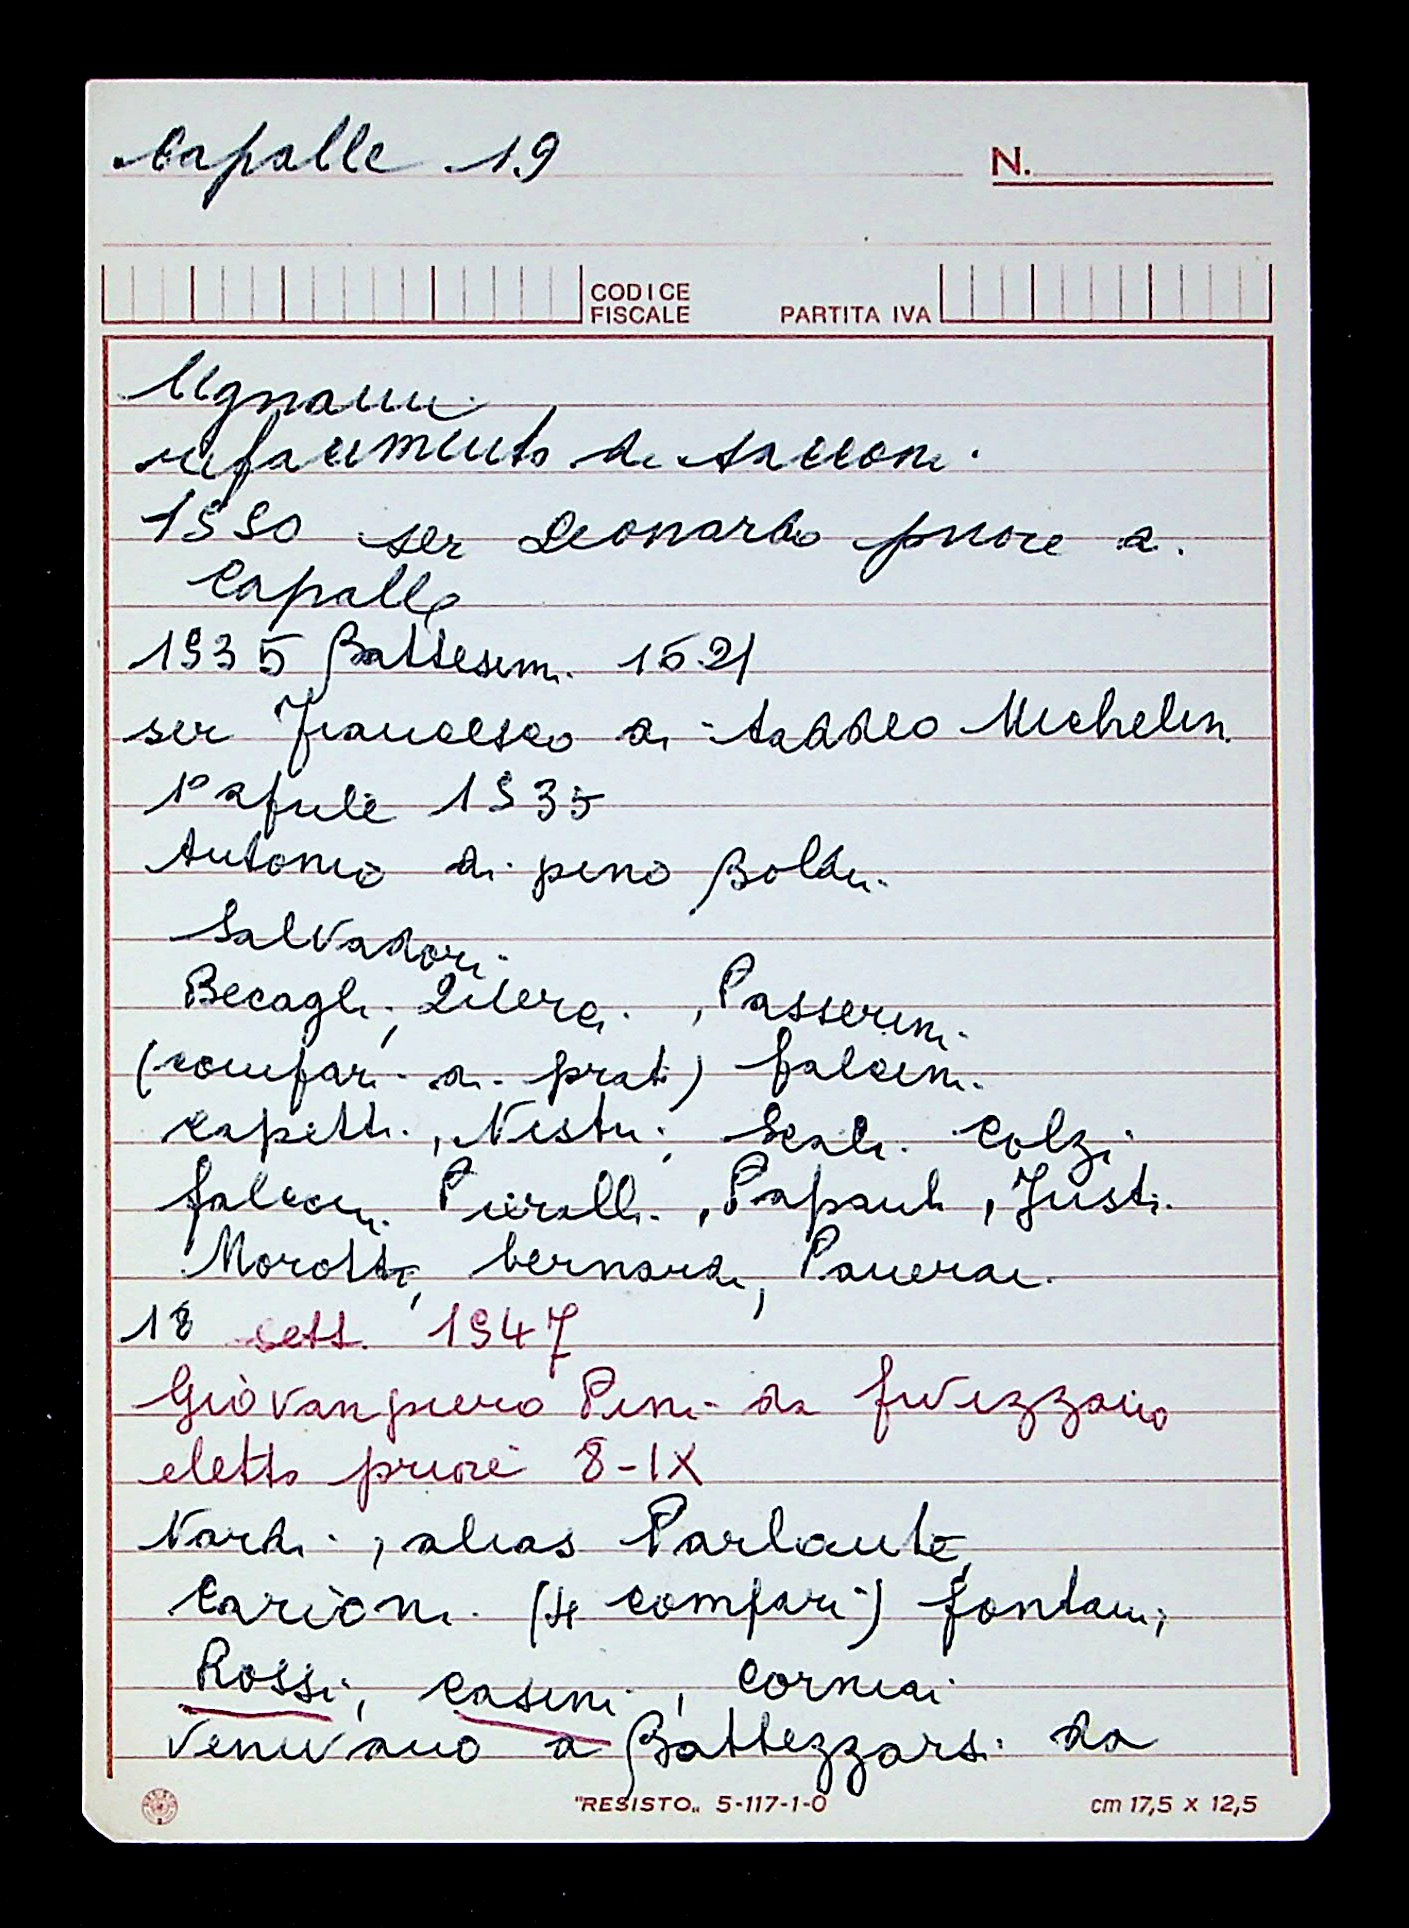 Capalle 19
N.
CODICE
FISCALE
PARTITA IVA
Ugnani
rifacimento di Saccone.
1530 ser Leonardo priore a
Capalle
1535 Battesimi 1621
ser Francesco di Taddeo Michelini
1° aprile 1535
Antonio di piero Boldri
Salvadori
Becagli, Querci, Passerini
(compari di prati) falcini
capetti, Nistri, Scali Colzi
falconi Pieralli, Papanti, Giusti
Morotti, bernardi, Panerai
18 sett. 1547
Giovanpiero Pini da fivizzano
eletto priore 8-IX
Nardi, alias Parlante,
Carioni (4 compari) fontani,
Rossi, casini, corniai
venivano a Battezzarsi da
"RESISTO„ 5-117-1-0
cm 17,5 x 12,5